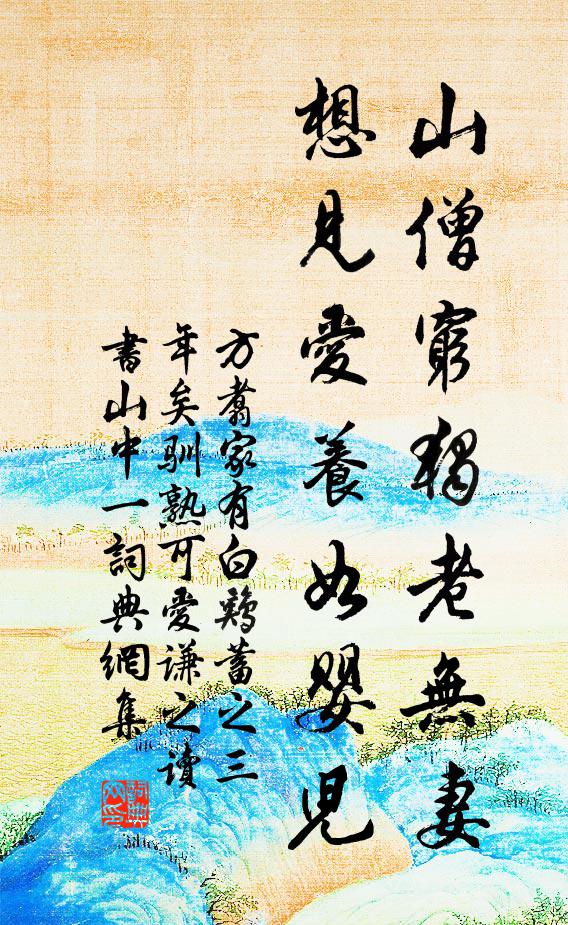 山僧窮獨老無妻
想見愛養如嬰兒
方翥家有白鷄蓄之三
年矣馴熟可愛謙之讀
書山中一詞典網集